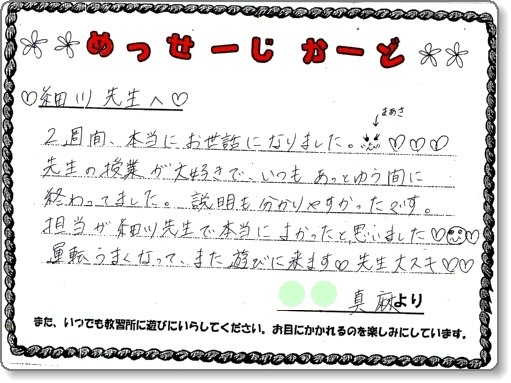 めっせーじ かーど
♡細川先生へ♡
まあさ
2週間、本当にお世話になりました。♡♡♡
先生の授業が大好きで、いつもあっとゆう間に
終わってました。説明も分かりやすかったです。
担当が細川先生で本当によかったと思いました♡
運転うまくなって、また遊びに来ます♡先生大スキ♡♡
真麻より
また、いつでも教習所に遊びにいらしてください。お目にかかれるのを楽しみにしています。